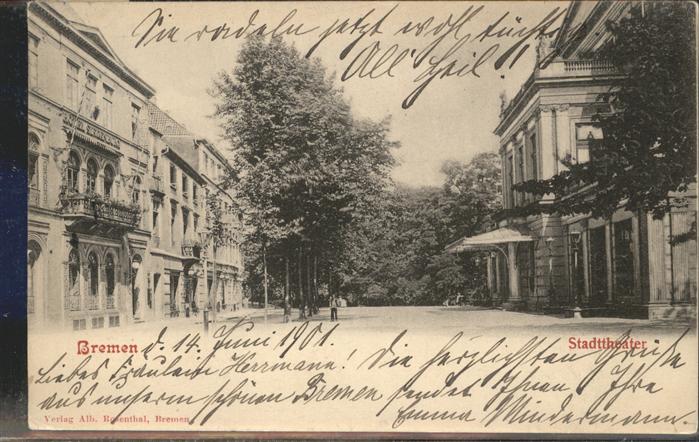 Sie radeln jetzt wohl tüchtig
All' Heil!!
Bremen d. 14. Juni 1901.
Stadttheater
Liebes Fräulein Herrmann. Die herzlichsten Grüße
aus unserm schönen Bremen sendet Ihnen Ihre
Emma Mindermann.
Verlag Alb. Rosenthal, Bremen